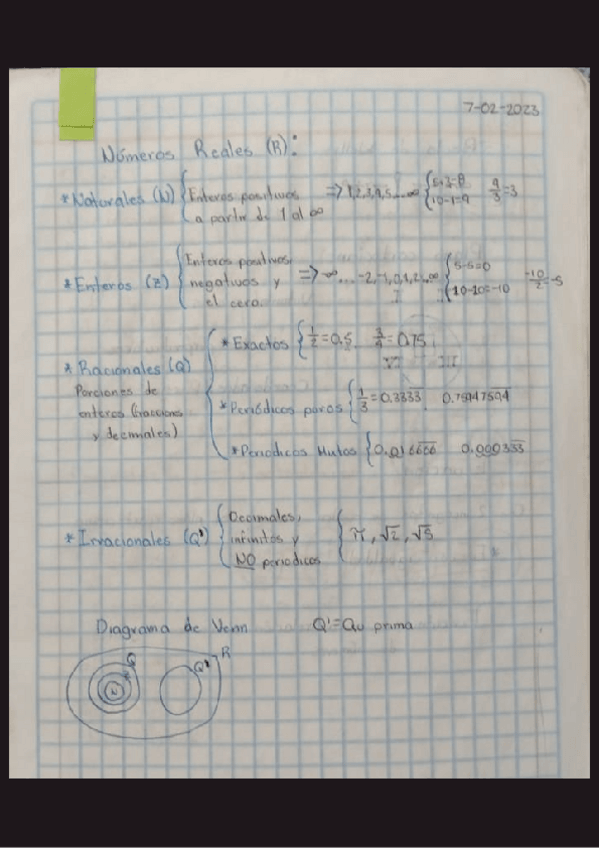 7-02-2023
Números Reales (R):
*Naturales (N) { Enteros positivos a partir de 1 al ∞ => 1,2,3,4,5,...∞ { 5+3=8 10-1=9 9/3=3
*Enteros (Z) { Enteros positivos, negativos y el cero. => ∞...-2,-1,0,1,2...∞ { 5-5=0 10-20=-10 -10/2=-5
* Racionales (Q)
Porciones de
enteros (fracciones
y decimales)
*Exactos { 1/2=0.5 3/4=0.75
*Periódicos puros { 1/3=0.3333 0.75947594
*Periodicos Mixtos { 0.016666 0.000333
*Irracionales (Q') { Decimales, infinitos y NO periodicos { π, √2, √5
Diagrama de Venn Q'=Qu prima
Q Q' R
Z
N